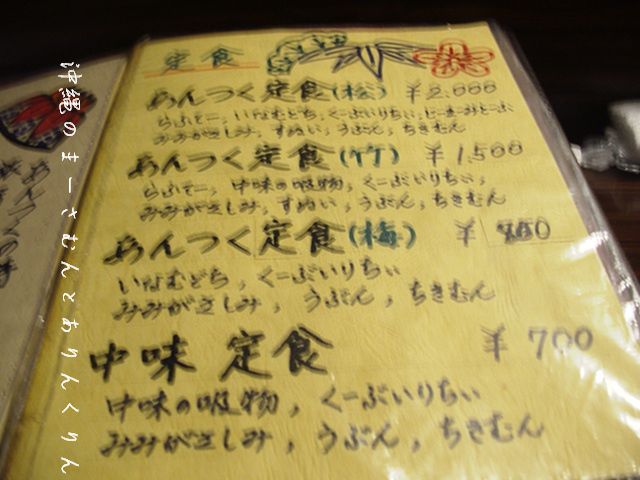 定食
あんつく定食(松) ¥2.000
らふてー, いなむどち, くーぶいりちぃ, じーまーみとーふ
みみがさしみ, すぬい, うぶん, ちきむん
あんつく定食(竹) ¥1,500
らふてー, 中味の吸物, くーぶいりちぃ,
みみがさしみ, すぬい, うぶん, ちきむん
あんつく定食(梅) ¥
いなむどち, くーぶいりちぃ
みみがさしみ, うぶん, ちきむん
中味定食 ¥700
中味の吸物, くーぶいりちぃ
みみがさしみ, うぶん, ちきむん
沖縄のまーさむんとありんくりん